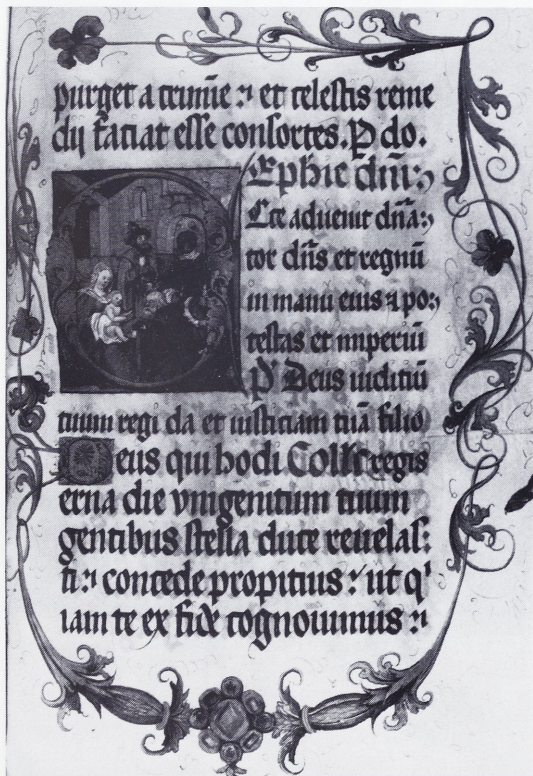 purget a crimīe :⁊ et celestis reme
dij faciat esse consortes. P do.
Ephie dn̄i:⁊
Ecce aduenit dn̄a:⁊
tor dn̄s et regnū
in manu eius ⁊ po:⁊
testas et imperiū
Deus iudiciū
tuum regi da et iusticiam tuā filio
Deus qui hodi Coll̄c regis
erna die vnigenitum tuum
gentibus stella duce reuelas:
ti :⁊ concede propitius :⁊ ut q'
iam te ex fide cognouimus :⁊